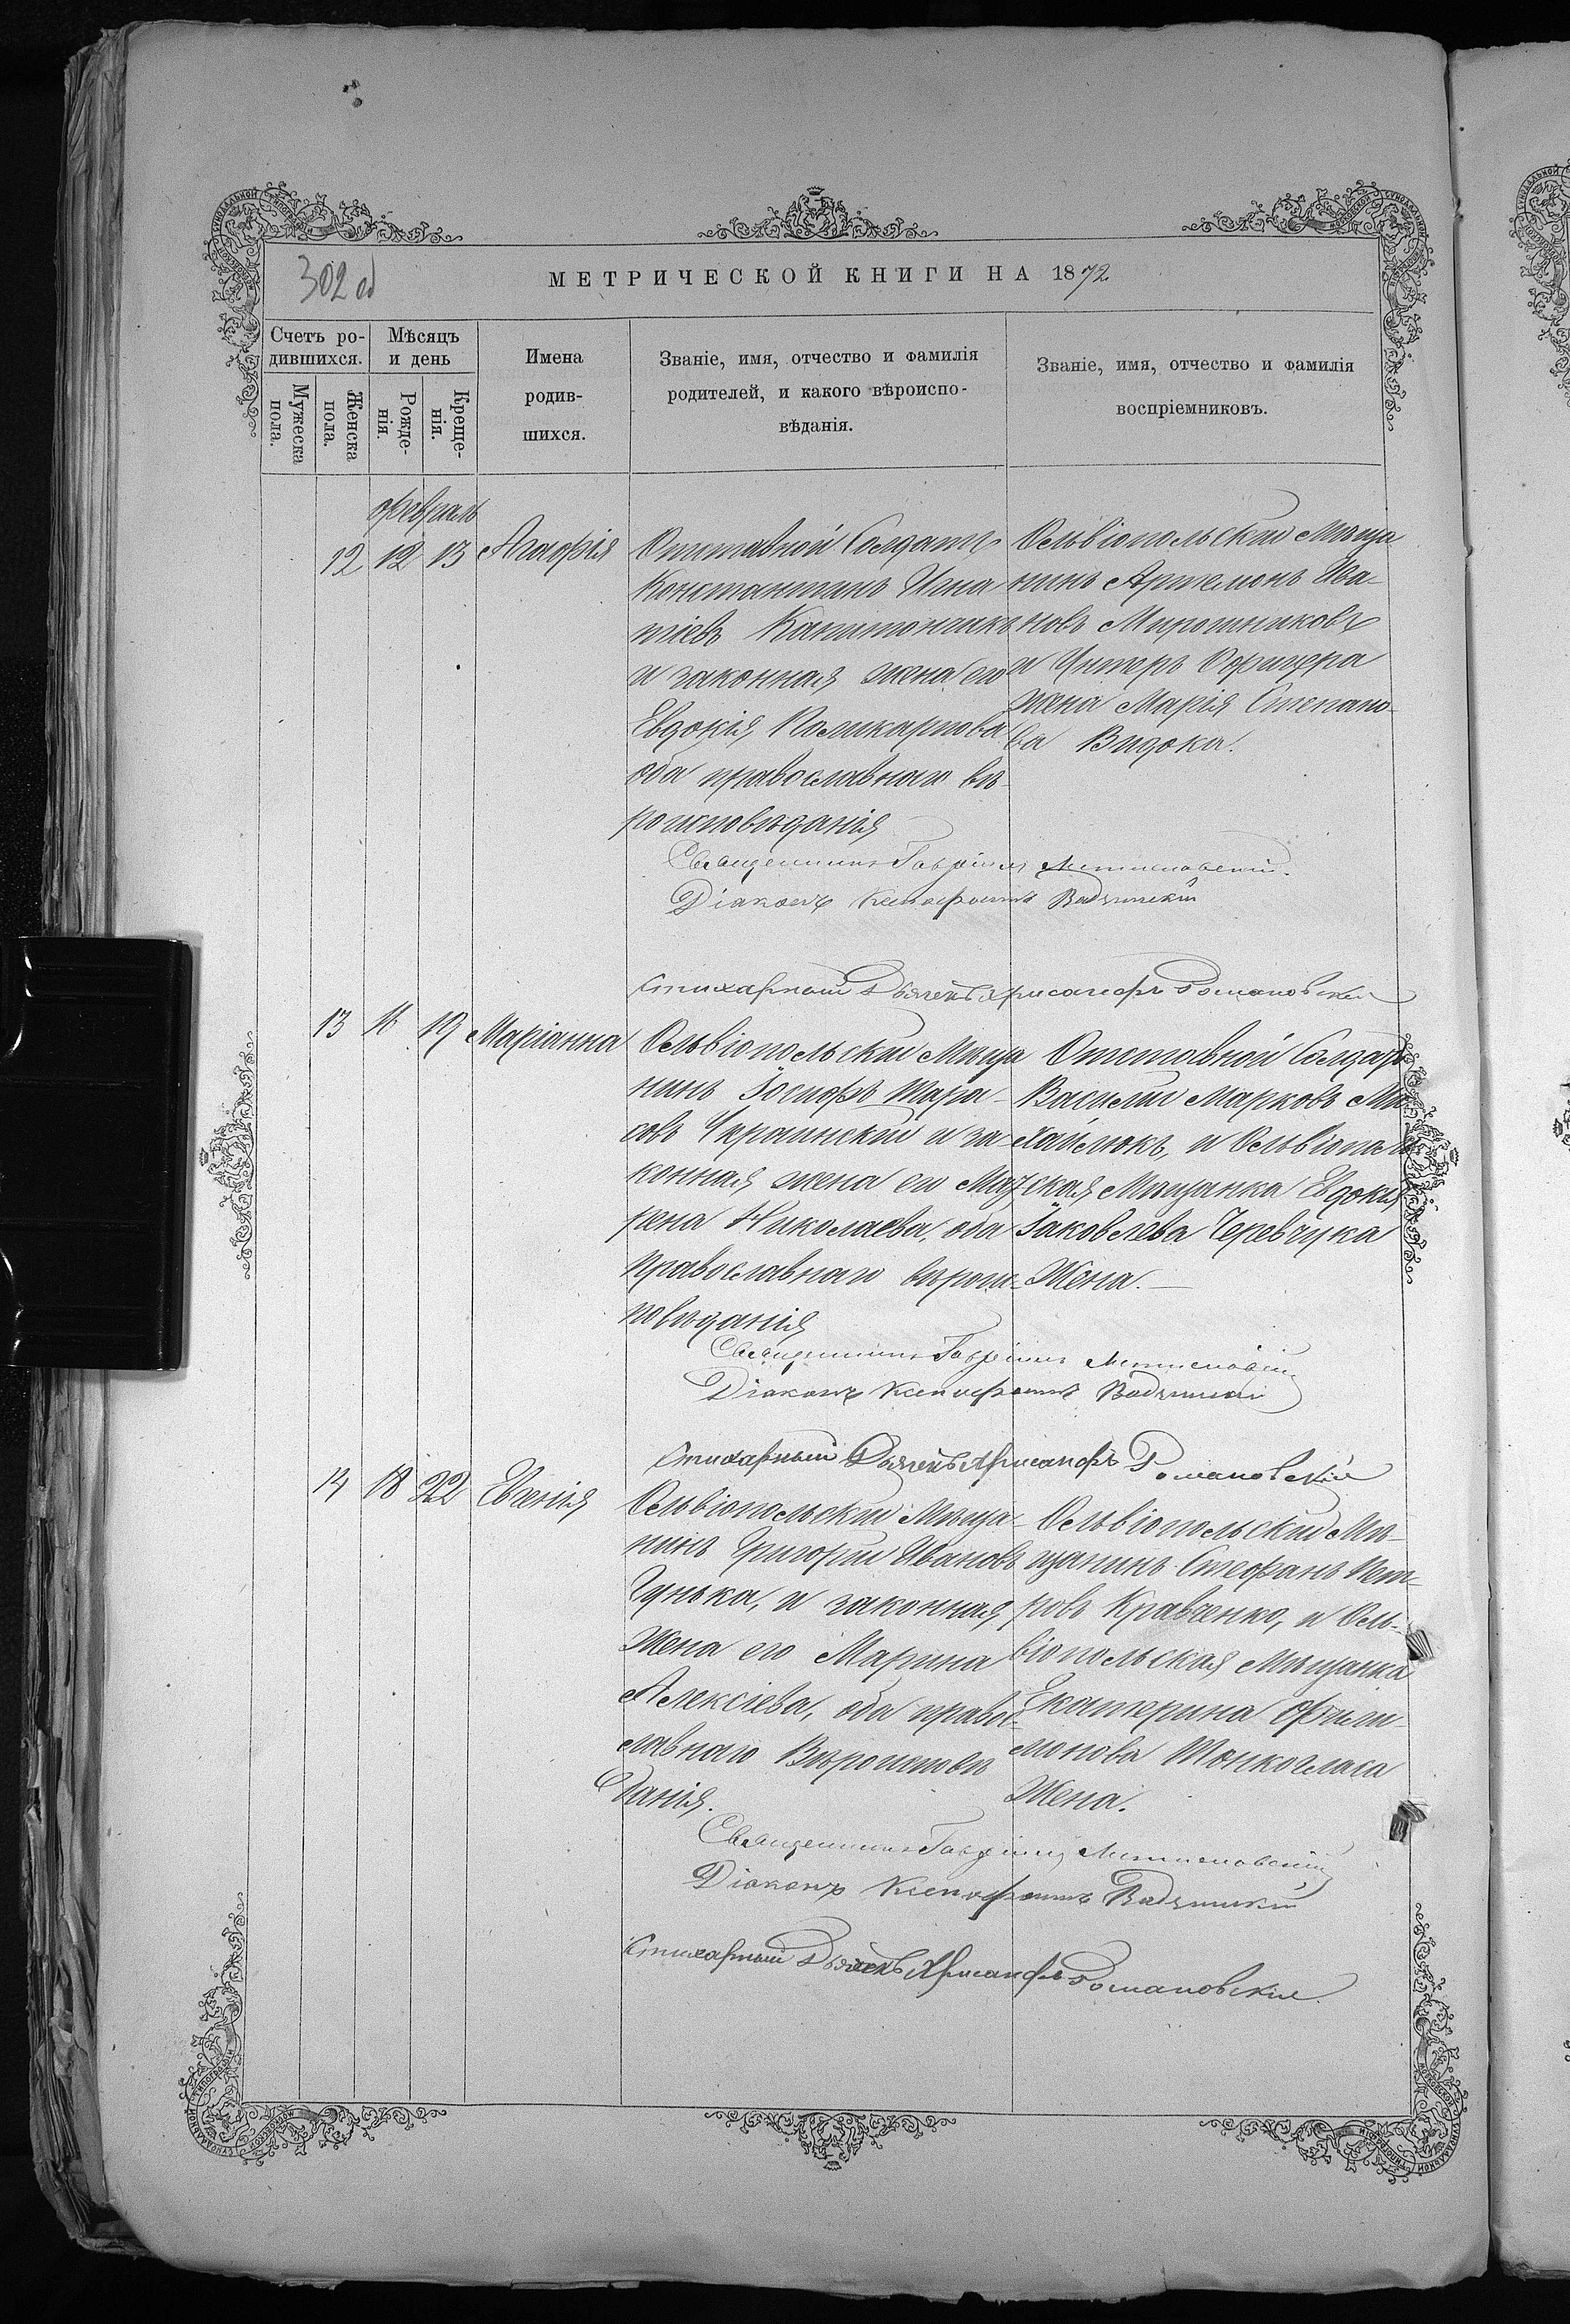 302 об
МЕТРИЧЕСКОЙ КНИГИ НА 1872
Счетъ ро-
дившихся.
Мужеска
пола.
Женска
пола.
Мѣсяцъ
и день
Рожде-
нія.
Креще-
нія.
Имена
родив-
шихся.
Званіе, имя, отчество и фамилія
родителей, и какого вѣроиспо-
вѣданія.
Званіе, имя, отчество и фамилія
воспріемниковъ.
февраль
12 12 13 Агафія
Отставной Солдатъ
Константинъ Игна
тіевъ Капитончикъ
и законная жена его
Евдокія Поликарпова
оба православнаго вѣ-
роисповѣданія
Ольвіопольскій Мѣща
нинъ Артемонъ Ива-
новъ Мирошниковъ
и Унтеръ Офицера
жена Марія Степано-
ва Видока.
Священникъ Гавріилъ
Діаконъ Ксенофонтъ
Стихарный Дьячекъ Хрисанфъ Романовскій
13 16 19 Маріанна
Ольвіопольскій Мѣща
нинъ Іосифъ Тара-
совъ Украинскій и за-
конная жена его Мат
рена Николаева, оба
православнаго вѣроис-
повѣданія
Отставной Солдатъ
Василій Марковъ Ми
хайлюкъ, и Ольвіополь
ская Мѣщанка Евдокія
Іаковлева Черевчука
Жена.
Священникъ Гавріилъ
Діаконъ Ксенофонтъ
Стихарный Дьячекъ Хрисанфъ Романовскій
14 18 22 Евгенія
Ольвіопольскій Мѣща-
нинъ Григорій Ивановъ
Гунька, и законная
Жена его Марина
Алексіева, оба правос-
лавнаго Вѣроисповѣ
данія.
Ольвіопольскій Мѣ-
щанинъ Стефанъ Пет-
ровъ Кравченко, и Оль-
віопольская Мѣщанка
Екатерина Фили-
монова Тонкогласа
Жена.
Священникъ Гавріилъ
Діаконъ Ксенофонтъ
Стихарный Дьячекъ Хрисанфъ Романовскій